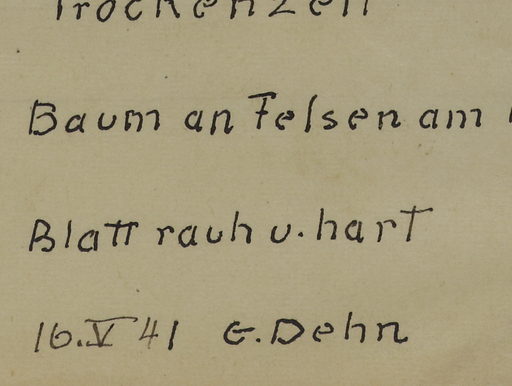 Trockenzeit
Baum an Felsen am
Blatt rauh u. hart
16.V 41 E. Dehn